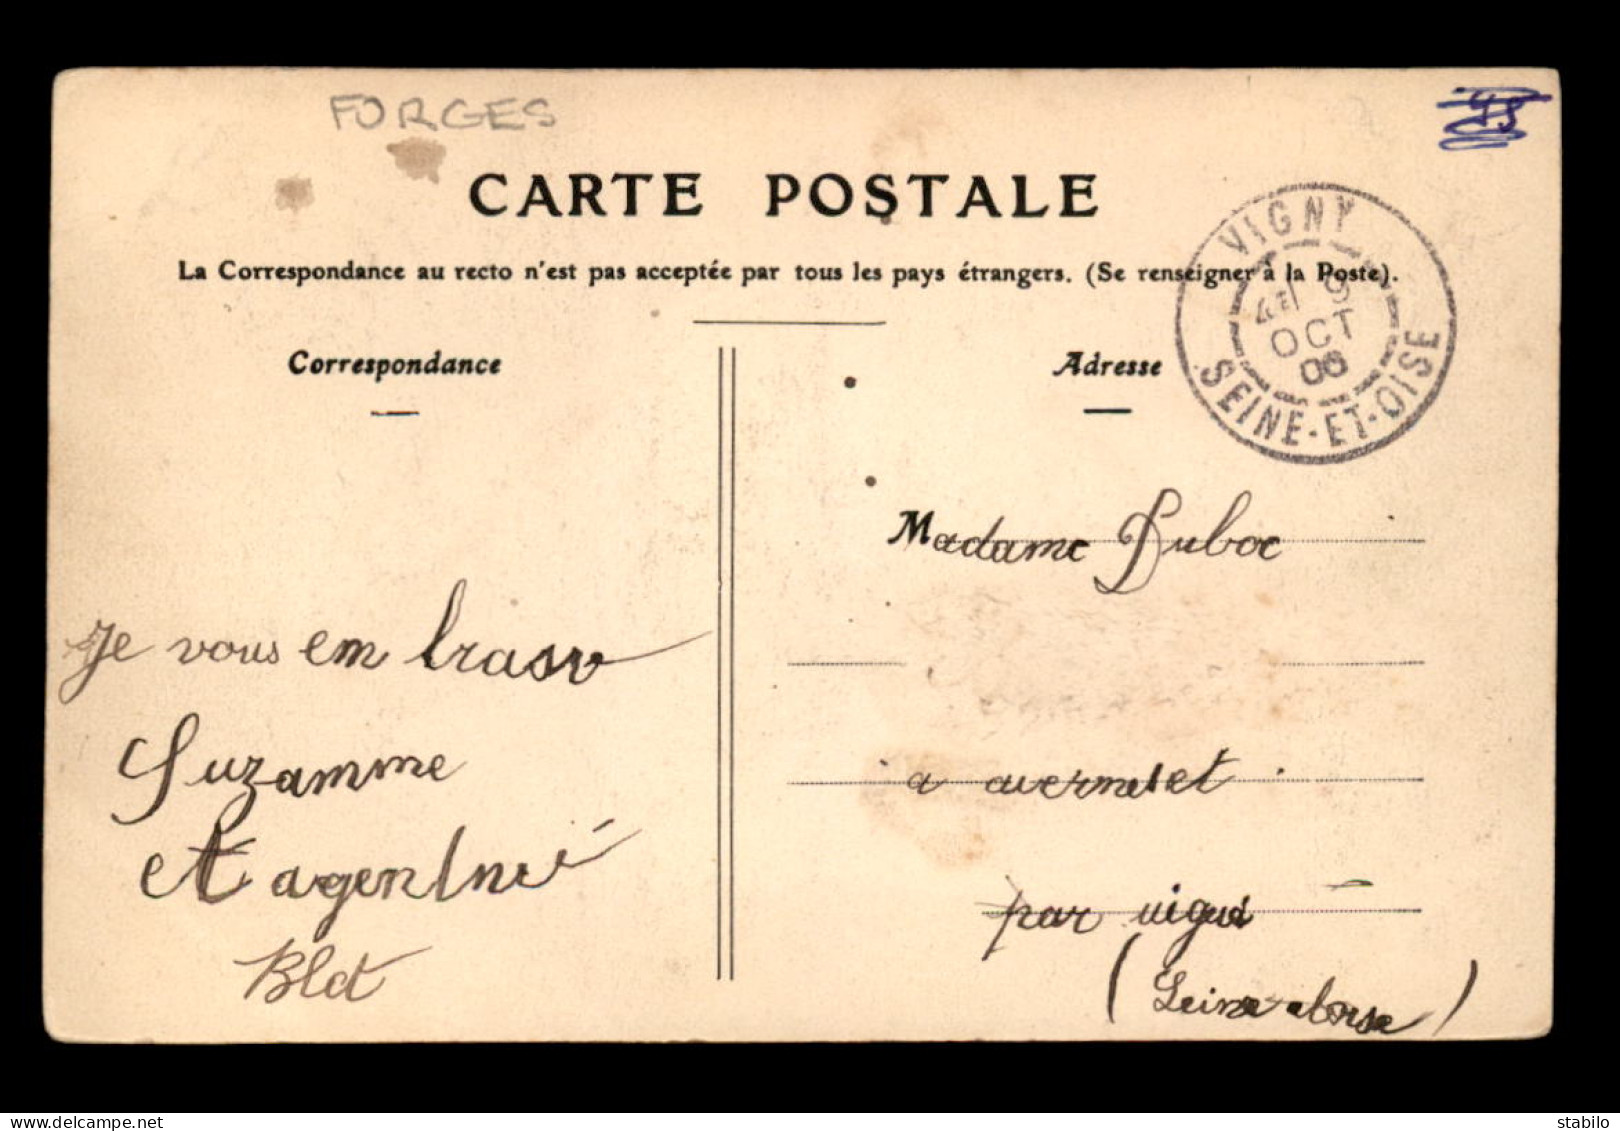 FORGES
45
CARTE POSTALE
La Correspondance au recto n'est pas acceptée par tous les pays étrangers. (Se renseigner à la Poste).
VIGNY
4E 9
OCT
06
SEINE-ET-OISE
Correspondance
Adresse
Madame Duboc
a avernelet
par vigni
(Seine et oise)
Je vous em brasse
Suzanne
et agent
Blot
stabilo
delcampe.net